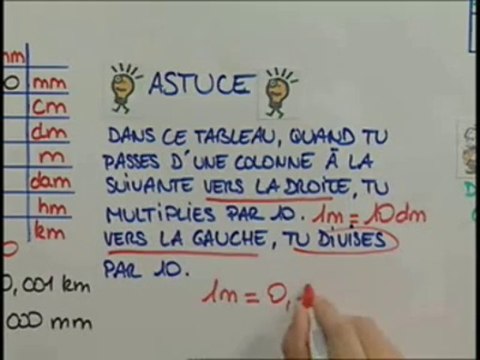 mm
0 mm
cm
dm
m
dam
hm
km
0
0,001 km
000 mm
ASTUCE
DANS CE TABLEAU, QUAND TU
PASSES D'UNE COLONNE À LA
SUIVANTE VERS LA DROITE, TU
MULTIPLIES PAR 10. 1m = 10dm
VERS LA GAUCHE, TU DIVISES
PAR 10.
1m = 0,